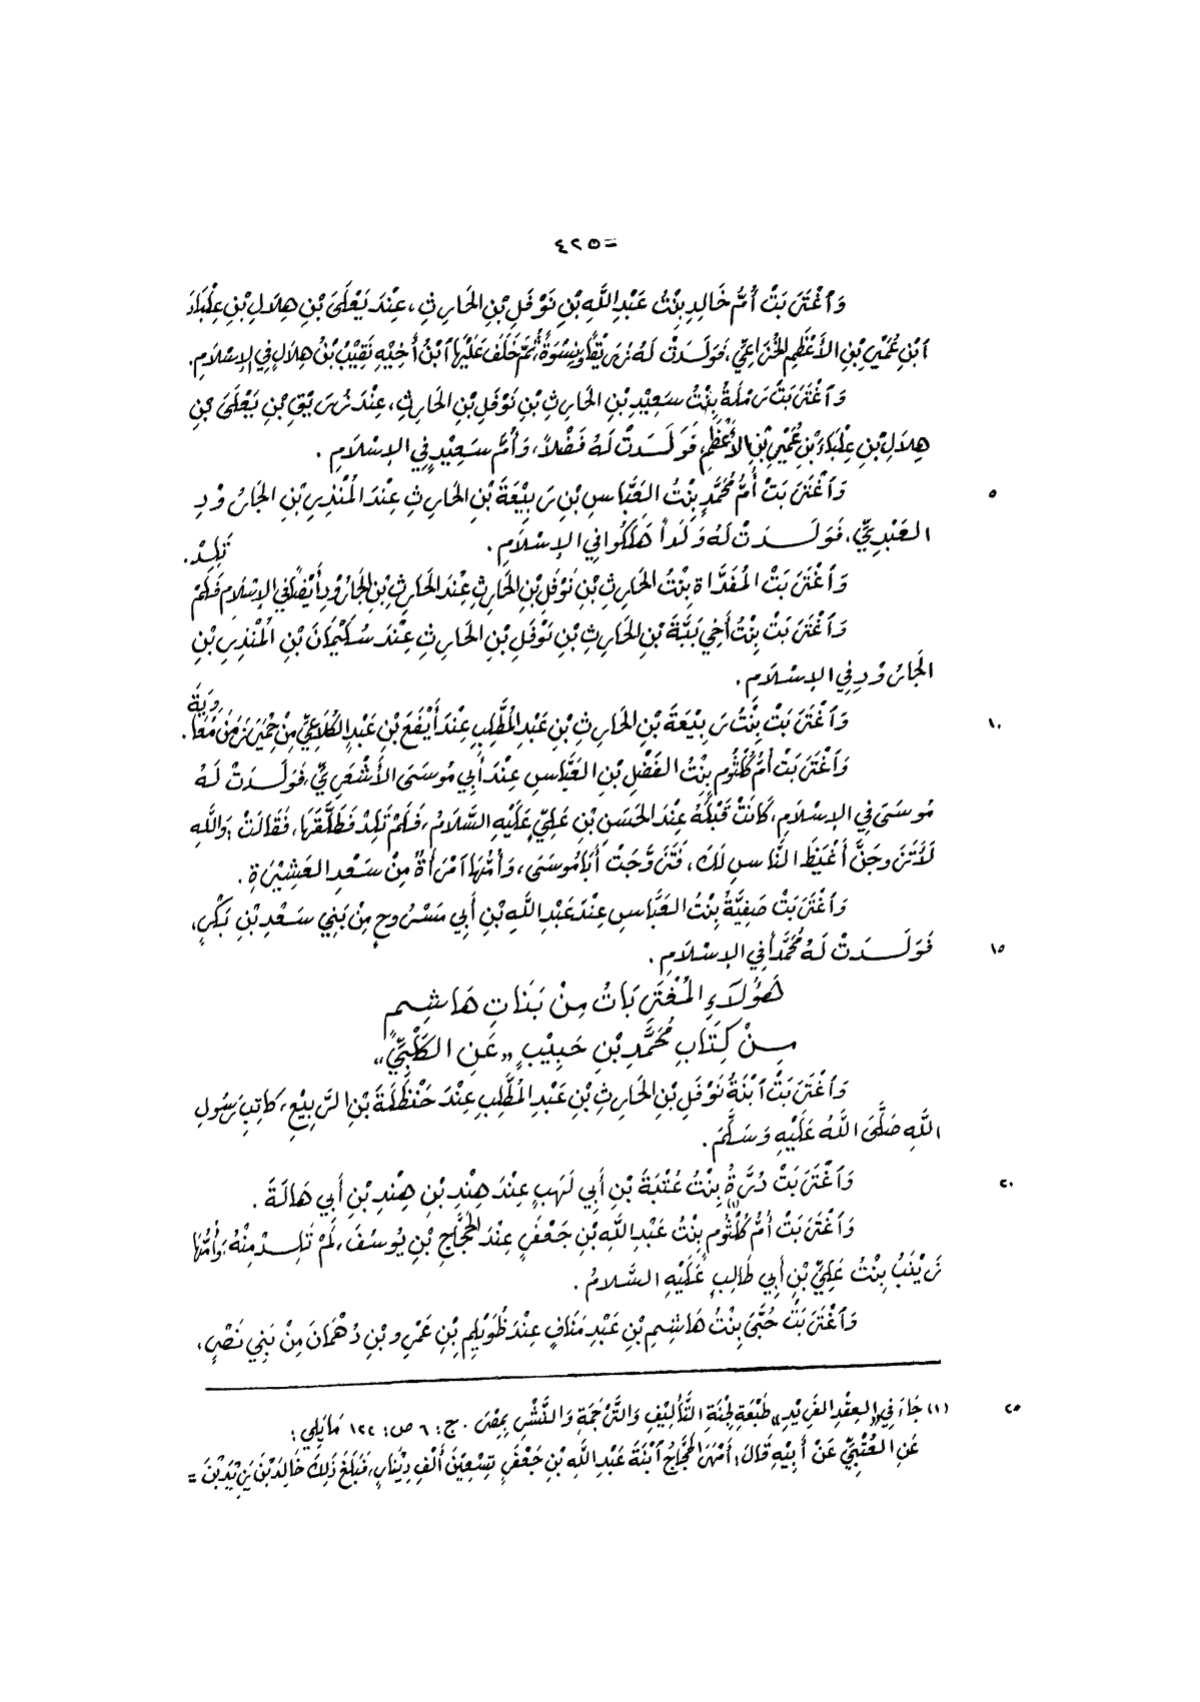 =٤٢٥
وَٱغْتَرَبَتْ أُمُّ خَالِدِ بِنْتُ عَبْدِ اللَّهِ بْنِ نَوْفَلِ بْنِ الحَارِثِ، عِنْدَ يَعْلَىَ بْنِ هِلَالِ بْنِ عِلْبَاءَ
ٱبْنِ عُمَيْرِ بْنِ الأَعْظَمِ الخُزَاعِيِّ، فَوَلَدَتْ لَهُ زُرَيْقَاً وَنِسْوَةً، ثُمَّ خَلَفَ عَلَيْهَا ٱبْنُ أَخِيْهِ نَقِيْبُ بْنُ هِلَالٍ فِي الإِسْلَامِ.
وَٱغْتَرَبَتْ رَمْلَةُ بِنْتُ سَعِيْدِ بْنِ الحَارِثِ بْنِ نَوْفَلِ بْنِ الحَارِثِ، عِنْدَ زُرَيْقِ بْنِ يَعْلَىَ بْنِ
هِلَالِ بْنِ عِلْبَاءَ بْنِ عُمَيْرِ بْنِ الأَعْظَمِ، فَوَلَدَتْ لَهُ فَضْلاً، وَأُمَّ سَعِيْدٍ فِي الإِسْلَامِ.
٥ وَٱغْتَرَبَتْ أُمُّ مُحَمَّدٍ بِنْتُ العَبَّاسِ بْنِ رَبِيْعَةَ بْنِ الحَارِثِ عِنْدَ المُنْذِرِ بْنِ الجَارُوْدِ
العَبْدِيِّ، فَوَلَدَتْ لَهُ وَلَداً هَلَكُوا فِي الإِسْلَامِ.
وَٱغْتَرَبَتْ المُفَدَّاةُ بِنْتُ الحَارِثِ بْنِ نَوْفَلِ بْنِ الحَارِثِ عِنْدَ الحَارِثِ بْنِ الجَارُوْدِ أَيْضَاً فِي الإِسْلَامِ فَلَمْ تَلِدْ.
وَٱغْتَرَبَتْ بِنْتُ أَخِي بَبَّةَ بْنِ الحَارِثِ بْنِ نَوْفَلِ بْنِ الحَارِثِ عِنْدَ سُلَيْمَانَ بْنِ المُنْذِرِ بْنِ
الجَارُوْدِ فِي الإِسْلَامِ.
١٠ وَٱغْتَرَبَتْ بِنْتُ رَبِيْعَةَ بْنِ الحَارِثِ بْنِ عَبْدِ المُطَّلِبِ عِنْدَ أَيْفَعَ بْنِ عَبْدٍ الكُلَاعِيِّ مِنْ حِمْيَرَ زَمَنَ مُعَاوِيَةَ.
وَٱغْتَرَبَتْ أُمُّ كُلْثُومٍ بِنْتُ الفَضْلِ بْنِ العَبَّاسِ عِنْدَ أَبِي مُوسَىَ الأَشْعَرِيِّ، فَوَلَدَتْ لَهُ
مُوسَىَ فِي الإِسْلَامِ، كَانَتْ قَبْلَهُ عِنْدَ الحَسَنِ بْنِ عَلِيٍّ عَلَيْهِ السَّلَامُ، فَلَمْ تَلِدْ فَطَلَّقَهَا، فَقَالَتْ: وَاللَّهِ
لَأَتَزَوَجَنَّ أَغْيَظَ النَّاسِ لَكَ، فَتَزَوَّجَتْ أَبَا مُوسَىَ، وَأُمُّهَا ٱمْرَأَةٌ مِنْ سَعْدِ العَشِيْرَةِ.
وَٱغْتَرَبَتْ صَفِيَّةُ بِنْتُ العَبَّاسِ عِنْدَ عَبْدِ اللَّهِ بْنِ أَبِي مَسْرُوحٍ مِنْ بَنِي سَعْدِ بْنِ بَكْرٍ،
١٥ فَوَلَدَتْ لَهُ مُحَمَّداً فِي الإِسْلَامِ.
هَؤُلَاءِ المُغْتَرِبَاتُ مِنْ بَنَاتِ هَاشِمٍ
مِنْ كِتَابِ مُحَمَّدِ بْنِ حَبِيْبٍ «عَنِ الكَلْبِيِّ»
وَٱغْتَرَبَتْ ٱبْنَةُ نَوْفَلِ بْنِ الحَارِثِ بْنِ عَبْدِ المُطَّلِبِ عِنْدَ حَنْظَلَةَ بْنِ الرَّبِيْعِ، كَاتِبِ رَسُولِ
اللَّهِ صَلَّىَ اللَّهُ عَلَيْهِ وَسَلَّمَ.
٢٠ وَٱغْتَرَبَتْ دُرَّةُ بِنْتُ عُتْبَةَ بْنِ أَبِي لَهَبٍ عِنْدَ هِنْدِ بْنِ هِنْدِ بْنِ أَبِي هَالَةَ.
وَٱغْتَرَبَتْ أُمُّ كُلْثُومٍ(١) بِنْتُ عَبْدِ اللَّهِ بْنِ جَعْفَرٍ عِنْدَ الحَجَّاجِ بْنِ يُوسُفَ، لَمْ تَلِدْ مِنْهُ، وَأُمُّهَا
زَيْنَبُ بِنْتُ عَلِيِّ بْنِ أَبِي طَالِبٍ عَلَيْهِ السَّلَامُ.
وَٱغْتَرَبَتْ حُبَّىَ بِنْتُ هَاشِمِ بْنِ عَبْدِ مَنَافٍ عِنْدَ ظُوَيْلِمِ بْنِ عَمْرِو بْنِ دُهْمَانَ مِنْ بَنِي نَصْرٍ،
٢٥ (١) جَاءَ فِي «العِقْدِ الفَرِيْدِ» طَبْعَةِ لَجْنَةِ التَّأْلِيْفِ وَالتَّرْجَمَةِ وَالنَّشْرِ بِمِصْرَ. ج: ٦ ص: ١٢٢ مَا يَلِي:
عَنِ العُتْبِيِّ عَنْ أَبِيْهِ قَالَ: أَمْهَرَ الحَجَّاجُ ٱبْنَةَ عَبْدِ اللَّهِ بْنِ جَعْفَرٍ تِسْعِيْنَ أَلْفَ دِيْنَارٍ، فَبَلَغَ ذَلِكَ خَالِدَ بْنَ يَزِيْدَ بْنَ =